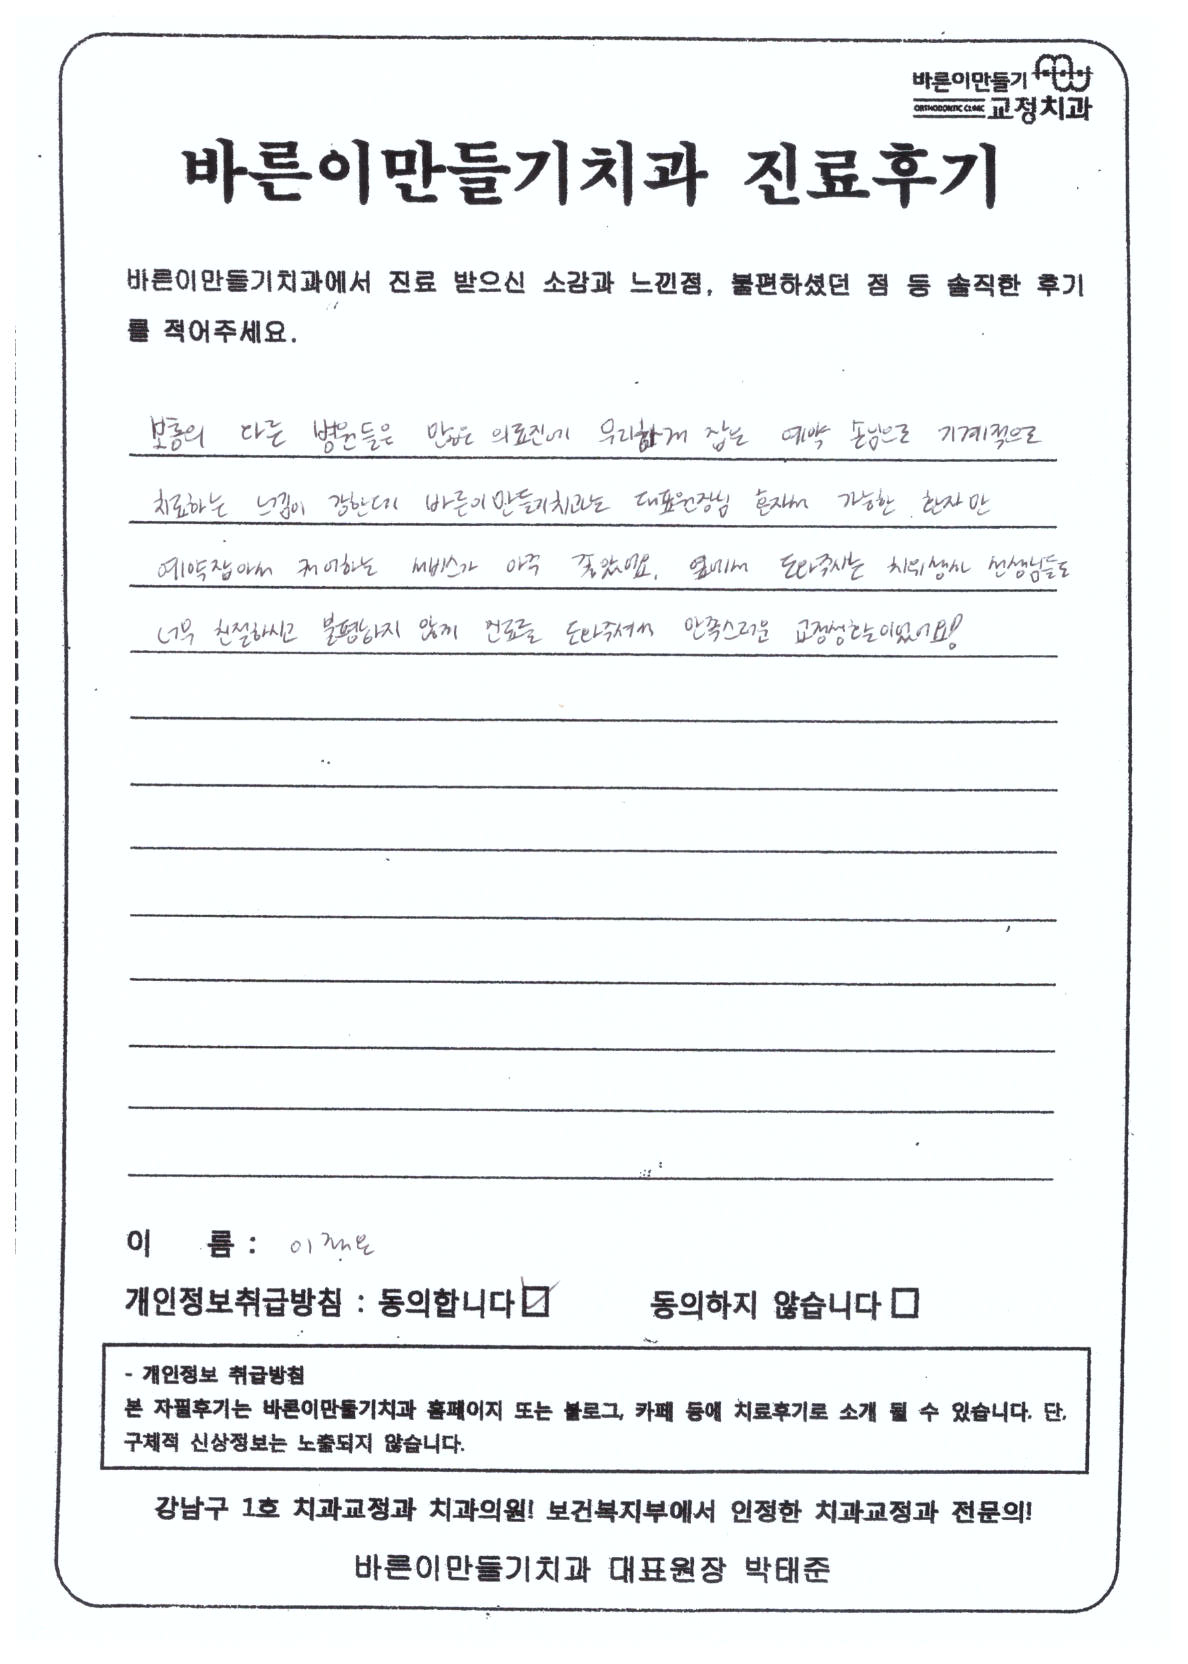 바른이만들기
ORTHODONTIC CLINIC 교정치과
바른이만들기치과 진료후기
바른이만들기치과에서 진료 받으신 소감과 느낀점, 불편하셨던 점 등 솔직한 후기
를 적어주세요.
보통의 다른 병원들은 많은 의료진에 무리하게 잡는 예약 손님으로 기계적으로
치료하는 느낌이 강한데 바른이만들기치과는 대표원장님 혼자서 가능한 환자만
예약잡아서 케어하는 서비스가 아주 좋았어요. 옆에서 도와주시는 치위생사 선생님들도
너무 친절하시고 불편하지 않게 진료를 도와주셔서 만족스러운 교정생활이었어요!
이 름 : 이
개인정보취급방침 : 동의합니다 동의하지 않습니다
- 개인정보 취급방침
본 자필후기는 바른이만들기치과 홈페이지 또는 블로그, 카페 등에 치료후기로 소개 될 수 있습니다. 단,
구체적 신상정보는 노출되지 않습니다.
강남구 1호 치과교정과 치과의원! 보건복지부에서 인정한 치과교정과 전문의!
바른이만들기치과 대표원장 박태준